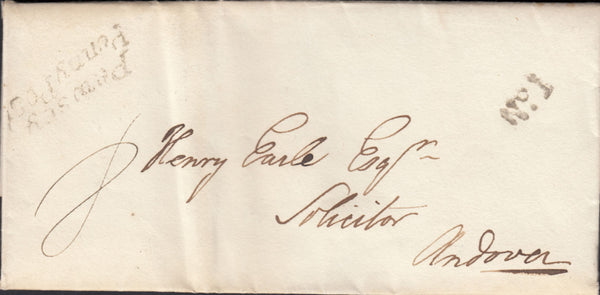 Penny Post
No.1
8
Henry Earle Esqr
Solicitor
Andover